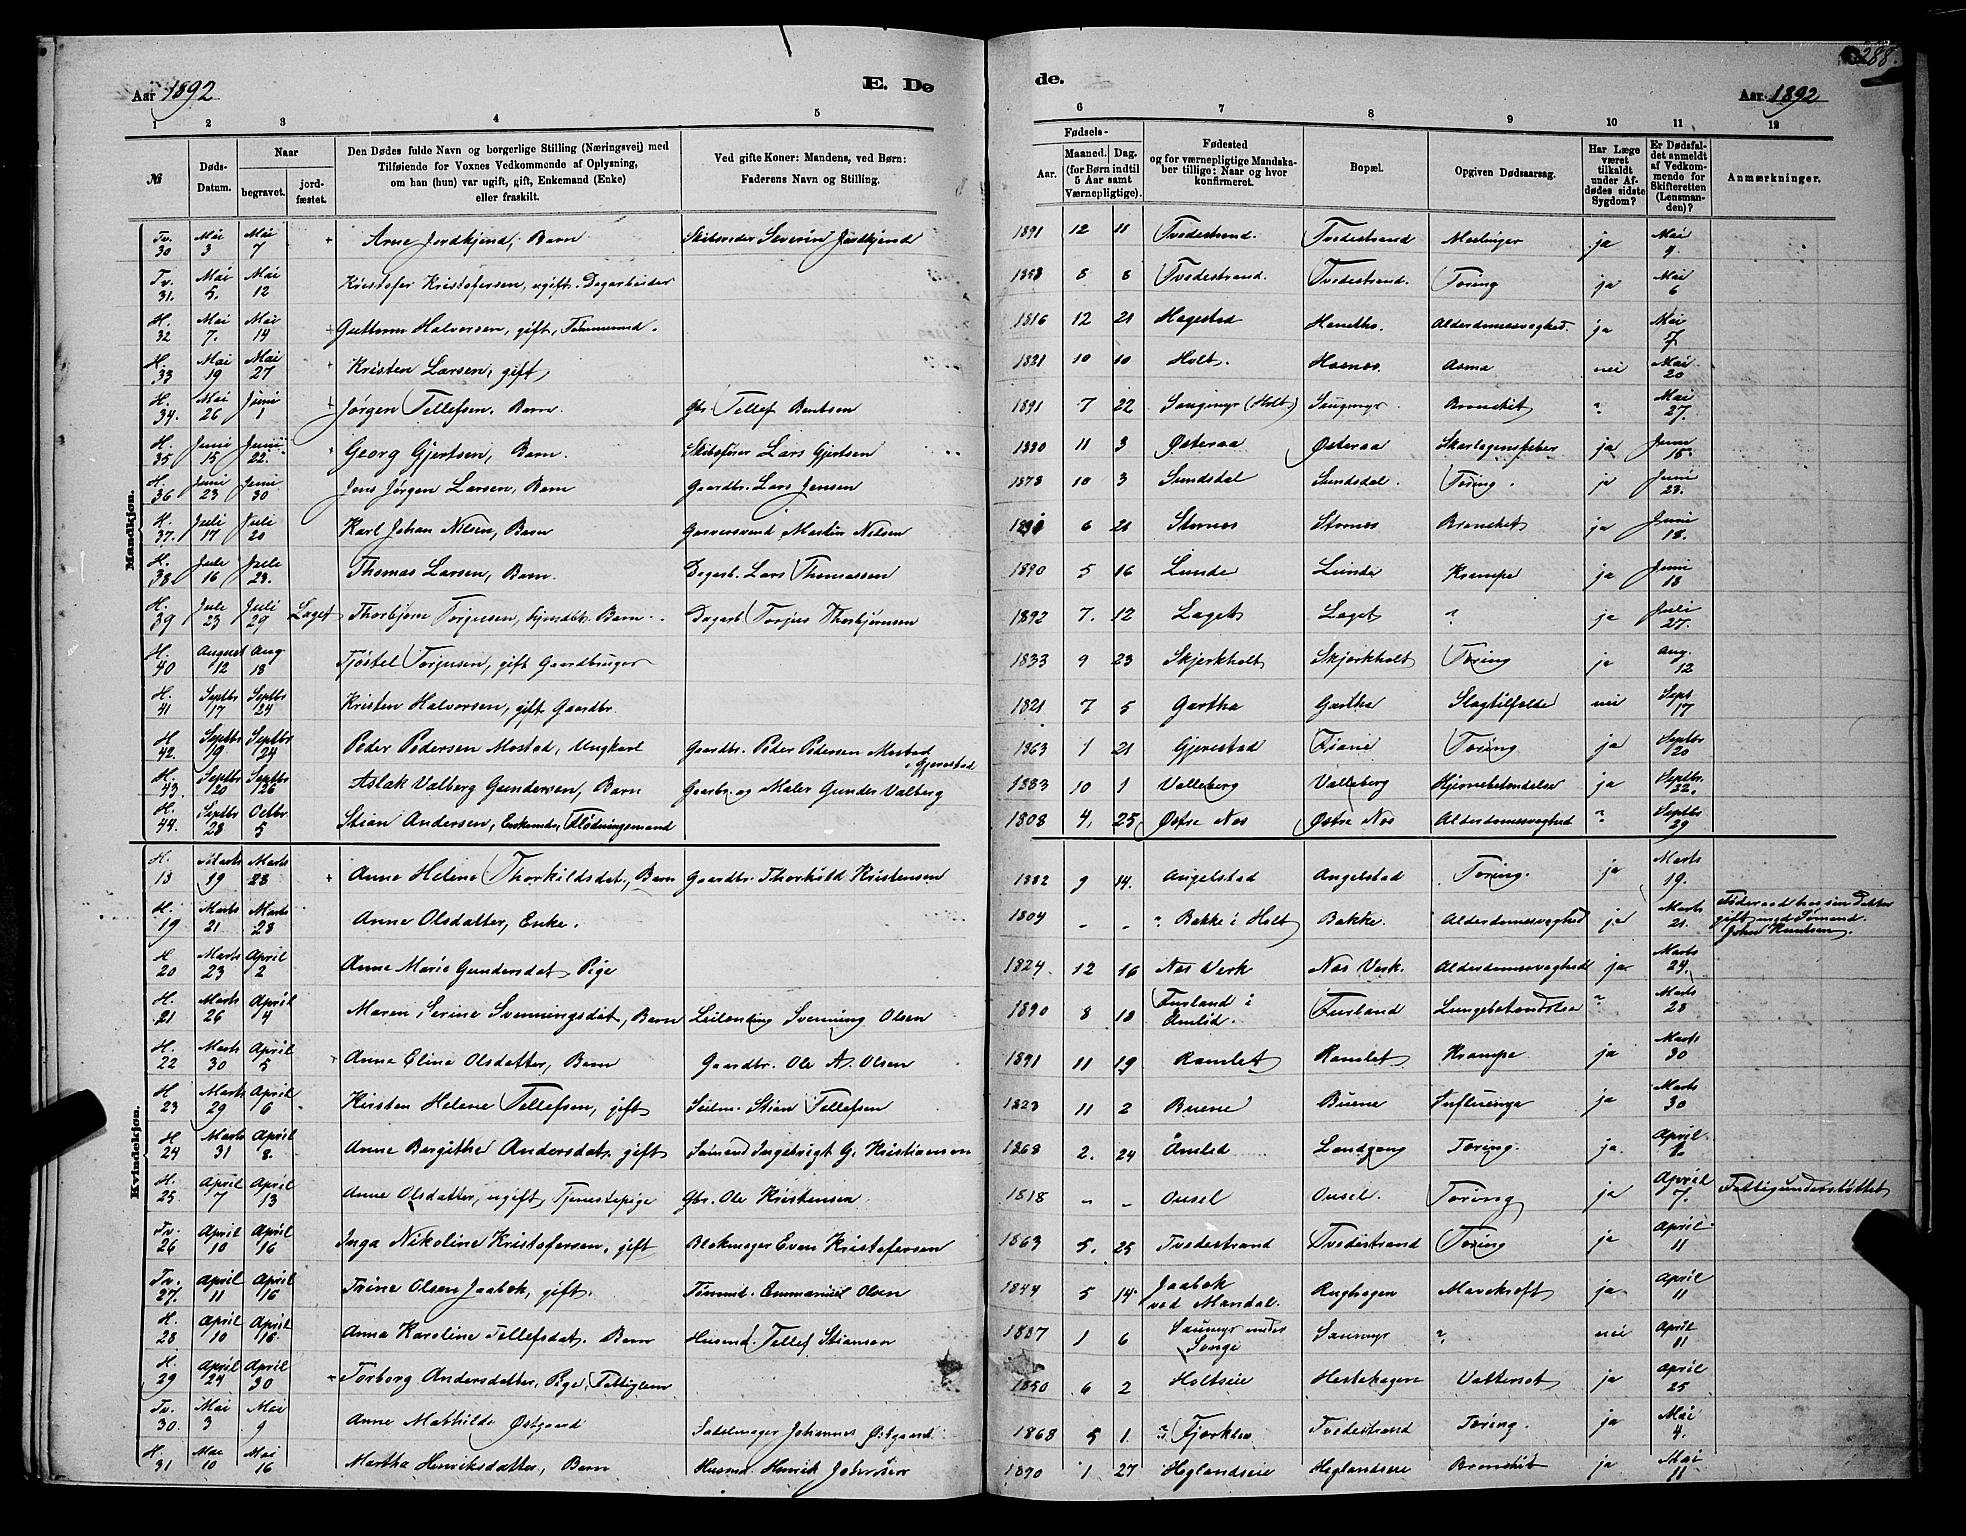 288.
Aar 1892
E. De
de.
Aar 1892
1 2 3 4 5 6 7 8 9 10 11 12
№
Døds-Datum.
Naar
begravet.
jord-fæstet.
Den Dødes fulde Navn og borgerlige Stilling (Næringsvej) med
Tilføiende for Voxnes Vedkommende af Oplysning,
om han (hun) var ugift, gift, Enkemand (Enke)
eller fraskilt.
Ved gifte Koner: Mandens, ved Børn:
Faderens Navn og Stilling.
Fødsels-
Aar.
Maaned. Dag.
(for Børn indtil
5 Aar samt
Værnepligtige).
Fødested
og for værnepligtige Mandska-
ber tillige: Naar og hvor
konfirmeret.
Bopæl.
Opgiven Dødsaarsag.
Har Læge
været
tilkaldt
under Af-
dødes sidste
Sygdom?
Er Dødsfal-
det anmeldt
af Vedkom-
mende for
Skifteretten
(Lensman-
den)?
Anmærkninger.
Mandkjøn.
Tv. 30 Mai 3 Mai 7 + Arne Jordkjend, Barn Skibsreder Severin Jordkjend 1891 12 11 Tvedestrand. Tvedestrand Meslinger ja Mai 4.
Tv. 31. Mai 5. Mai 12 Kristofer Kristofersen, ugift. Dagarbeider 8 8 Tvedestrand. Tvedestrand. Tæring ja Mai 6
H. 32 Mai 7. Mai 14 + Guttorm Halvorsen, gift, Tømmermd. 1816 12 21 Hagestad Alderdomssvaghed. ja Mai 7
H. 33 Mai 19 Mai 27 Kristen Larsen, gift 1821 10 10 Holt. Asma nei Mai 20
H. 34. Mai 26 Juni 1 Jørgen Tellefsen, Barn. Gbr. Tellef Bentsen 1891 7 22 Saugmyr (Holt) Saugmyr Bronchit " Mai 27.
H. 35 Juni 15 Juni 22. Georg Gjertsen, Barn. Skibsfører Lars Gjertsen 1880 11 3 Østeraa Østeraa Skarlagensfeber ja Juni 15
H. 36 Juni 23 Juni 30 Jens Jørgen Larsen, Barn Gaardbr. Lars Jensen 1878 10 3 Sundsdal Sundsdal. Tæring. ja Juni 23.
H. 37. Juli 17 Juli 20 Karl Johan Nilsen, Barn Garversvend Martin Nilsen 6 21 Stornes Stornes Bronchit ja Juni 18.
H. 38. Juli 16 Juli 23. Thomas Larsen, Barn. Dagarb. Lars Thomassen 1890 5 16 Lunde Lunde Krampe ja Juni 18
H. 39 Juli 23 Juli 29 Laget Thorbjørn Torjussen, hjemdbt. Barn. Dagarb. Torjus Thorbjørnsen 1892 7. 12 Laget Laget " ja Juli 27.
H. 40 August 12 Aug. 18 Tjøstel Torjusen, gift Gaardbruger 1833 9 23 Skjerkholt Skjerkholt Tæring ja Aug. 12
H. 41 Septbr 17 Septbr 24 Kristen Halvorsen, gift Gaardbr. 1821 7 5 Gartha Gartha Slagtilfælde nei Sept 17
H 42. Septbr 19 Septbr 24 Peder Pedersen Mostad, Ungkarl Gaardbr. Peder Pedersen Mostad i Gjerestad 1863 1 21 Gjerestad Fiane Tæring ja Septbr 20
H. 43. Septbr 20 Septbr 26 Aslak Valberg Gundersen, Barn Gaardbr. og Maler Gunder Valberg 1883 10 1 Valleberg Valleberg Hjernebetændelse ja Septbr. 22.
H. 44. Septbr 28 Octbr 5 Stian Andersen, Enkemd., Flødningsmand 1808 4, 25 Østre Nes Østre Nes Alderdomssvaghed " Septbr 29
Kvindekjøn.
H. 18 Marts 19 Marts 28 + Anne Helene Thorkildsdat., Barn Gaardbr. Thorkild Kristensen 1882 9 14. Angelstad Angelstad Tæring. ja Marts 19.
H. 19 Marts 21 Marts 28 Anne Olsdatter, Enke. 1804 - - " Bakke i Holt Bakke. Alderdomssvaghed ja Marts 21. Føderaad hos sin Datter gift med Sømand. John Knutsen.
H 20 Marts 23 April 2 Anne Marie Gundersdat, Pige 1824. 12 16 Nes Verk Nes Verk. Alderdomssvaghed ja Marts 24.
H. 21 Marts 26 April 4 Maren Serine Svenningsdat, Barn Leilending Svenning Olsen 1890 8 18 Furland i Aamlid. Furland Lungebetændelse " Marts 28
H. 22 Marts 30 April 5 Anne Eline Olsdatter, Barn Gaardbr. Ole A. Olsen 1891 11 19 Ramlet Ramlet Krampe ja Marts 30
H 23 Marts 29 April 6 Kirsten Helene Tellefsen, gift Seilm. Stian Tellefsen 1823 11 2 Buene Buene Influenza ja Marts 30
H 24 Marts 31 April 8. Anne Bergithe Andersdat. gift Sømand Ingebrigt G. Kristiansen 1868 2. 24 Åmlid Landgang Tæring. ja April
H. 25 April 7 April 13 Anne Olsdatter, ugift Tjenestepige Gbr. Ole Kristensen 1818 - - Ousel Ousel. Tæring ja April 7. Fattigunderstøttet
Tv. 26 April 10 April 16 Inga Nikoline Kristofersen, gift Blokmager Even Kristofersen 1863 5. 25 Tvedestrand Tvedestrand Tæring ja April 11
Tv. 27. April 11 April 16 Trine Olsen Jaabek, gift. Tømmd. Emmanuel Olsen 1844 5 14 Jaabek ved Mandal. Rughagen Mavekræft ja April 11
H. 28 April 10 April 16 Anna Karoline Tellefsdat. Barn Husmd Tellef Stianson 1887 1 6 Saumyr under Songe Saumyr " nei April 11
H. 29 April 24 April 30 Torborg Andersdatter, Pige, Fattiglem 1850 6 2 Holtseie Hestehagen Vattersot ja April 25
Tv. 30. Mai 3 Mai 9 Anne Mathilde Østgaard Sadelmager Johannes Østgaard 1868 5 1. Tvedestrand Tæring. ja Mai 4.
H. 31 Mai 10 Mai 16 Martha Henriksdatter, Barn Husmd. Henrik Johnsen 1890 1 27 Heglandseie Heglandseie Bronchit ja Mai 11